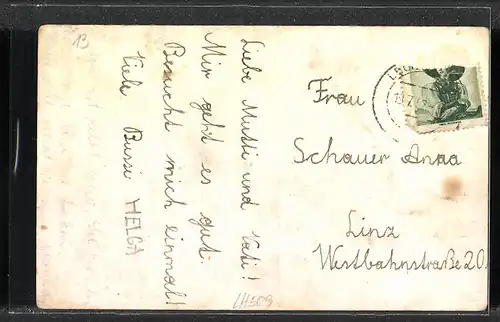 13
Liebe Mutti und Vati!
Mir geht es gut.
Besucht mich einmal!
Viele Bussi HELGA
Frau
Schauer Anna
Linz
Westbahnstraße 20.
LH509